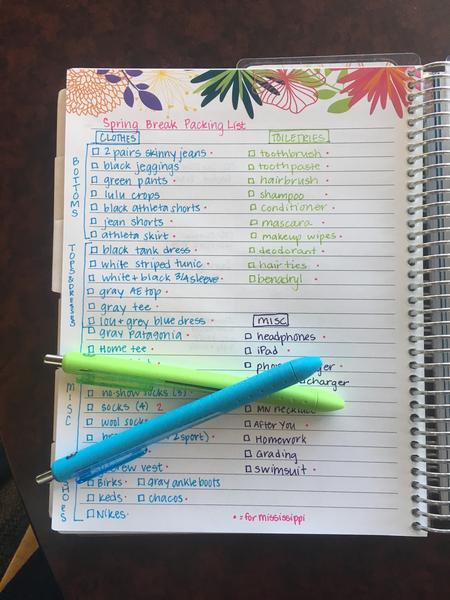 Spring Break Packing List
CLOTHES
BOTTOMS
2 pairs skinny jeans
black jeggings
green pants
lulu crops
black athleta shorts
jean shorts
athleta skirt
TOPS & DRESSES
black tank dress
white striped tunic
white + black 3/4 sleeve
gray AE top
gray tee
lou + grey blue dress
gray Patagonia
Home tee
MISC
no-show socks (3)
socks (4) 2
wool socks
2 sport)
vest
SHOES
Birks gray ankle boots
keds chacos
Nikes
TOILETRIES
toothbrush
toothpaste
hairbrush
shampoo
conditioner
mascara
makeup wipes
deodorant
hair ties
benadryl
MISC
headphones
iPad
charger
MN necklace
After You
Homework
Grading
swimsuit
* = for mississippi